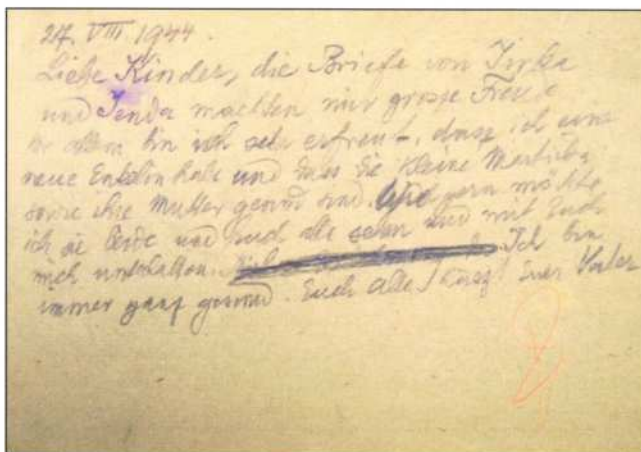 27. VIII. 1944.
Liebe Kinder, die Briefe von Jirka
und Jenda machten mir grosse Freude
vor allem bin ich sehr erfreut, dass ich eine
neue Enkelin habe und dass die kleine
sowie ihre Mutter gesund sind. Wie gern möchte
ich sie beide und Euch alle sehen und mit Euch
mich unterhalten. Ich bin
immer ganz gesund. Euch alle Euer Vater